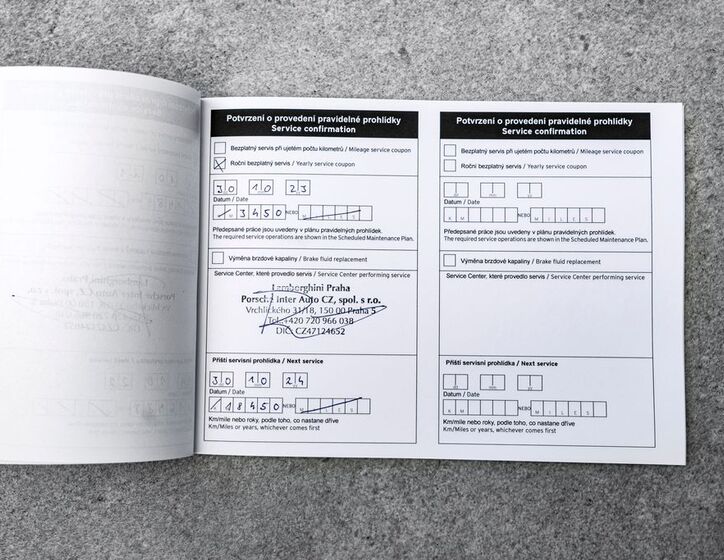 Potvrzení o provedení pravidelné prohlídky
Service confirmation
Bezplatný servis při ujetém počtu kilometrů / Mileage service coupon
Roční bezplatný servis / Yearly service coupon
30 10 23
Datum / Date
3450 NEBO MILES
Předepsané práce jsou uvedeny v plánu pravidelných prohlídek.
The required service operations are shown in the Scheduled Maintenance Plan.
Výměna brzdové kapaliny / Brake fluid replacement
Service Center, které provedlo servis / Service Center performing service
Lamborghini Praha
Porsche Inter Auto CZ, spol. s r.o.
Vrchlického 31/18, 150 00 Praha 5
Tel.: +420 720 966 038
DIČ: CZ47124652
Příští servisní prohlídka / Next service
30 10 24
Datum / Date
18450 NEBO MILES
Km/míle nebo roky, podle toho, co nastane dříve
Km/Miles or years, whichever comes first
Potvrzení o provedení pravidelné prohlídky
Service confirmation
Bezplatný servis při ujetém počtu kilometrů / Mileage service coupon
Roční bezplatný servis / Yearly service coupon
Datum / Date
KM NEBO MILES
Předepsané práce jsou uvedeny v plánu pravidelných prohlídek.
The required service operations are shown in the Scheduled Maintenance Plan.
Výměna brzdové kapaliny / Brake fluid replacement
Service Center, které provedlo servis / Service Center performing service
Příští servisní prohlídka / Next service
Datum / Date
KM NEBO MILES
Km/míle nebo roky, podle toho, co nastane dříve
Km/Miles or years, whichever comes first